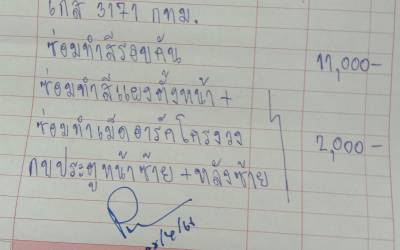 3171 กทม.
ซ่อมทำสีรอบคัน 11,000-
ซ่อมทำสีแผงตั้งหน้า +
ซ่อมทำเม็ดอาร์คโครงวง 2,000-
กบประตูหน้าซ้าย + หลังซ้าย